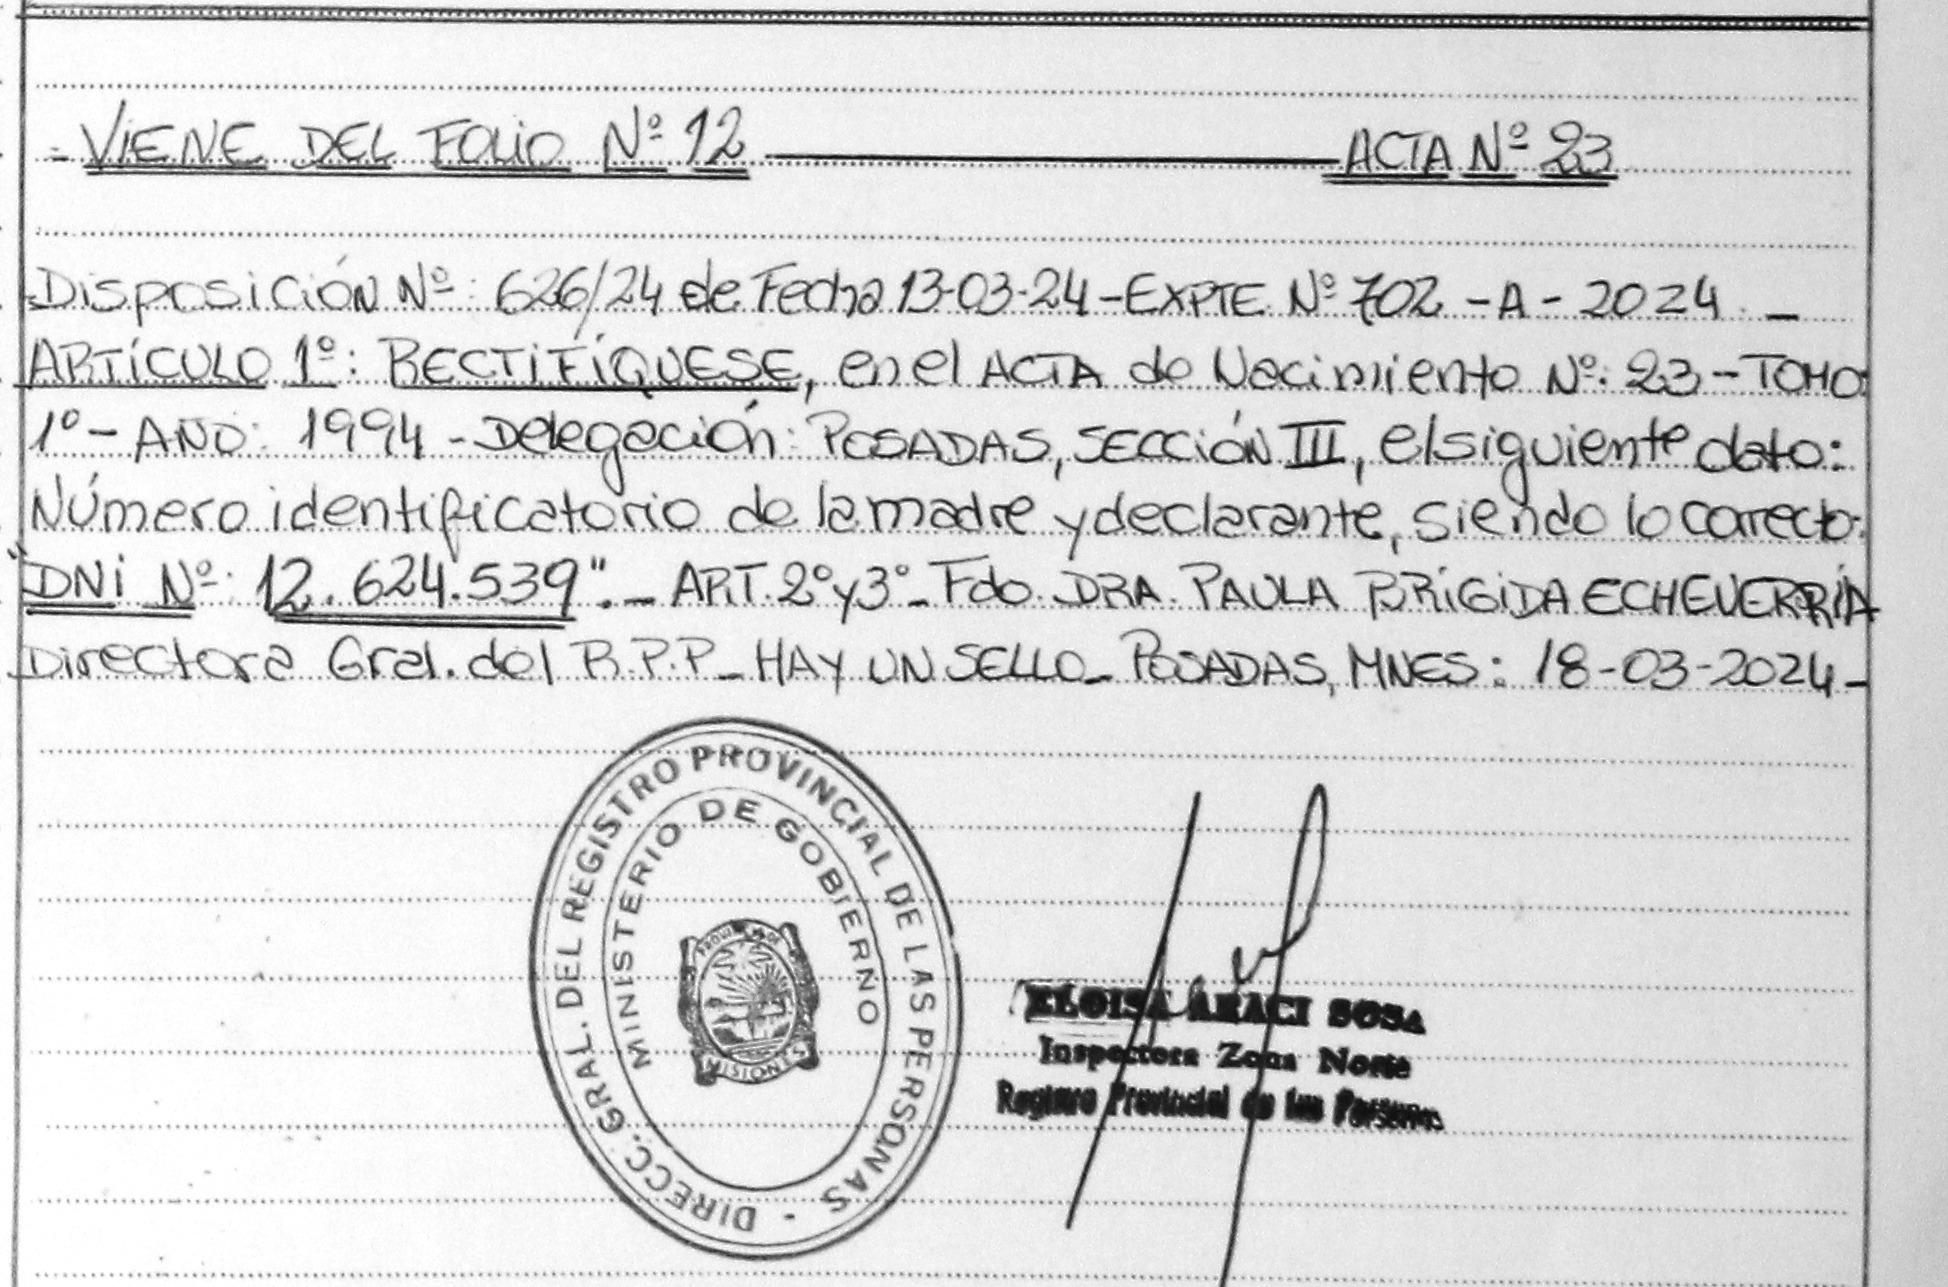 - VIENE DEL FOLIO Nº 12 ACTA Nº 23
Disposición Nº: 626/24 de Fecha 13-03-24 - EXPTE Nº 702 - A - 2024. -
ARTÍCULO 1º: RECTIFÍQUESE, en el ACTA de Nacimiento Nº: 23 - TOMO:
1º - AÑO: 1994 - Delegación: POSADAS, SECCIÓN III, el siguiente dato:
Número identificatorio de la madre y declarante, siendo lo correcto:
"DNI Nº: 12.624.539". - ART. 2º y 3º - Fdo. DRA. PAULA BRÍGIDA ECHEVERRÍA
Directora Gral. del R.P.P - HAY UN SELLO - POSADAS, MNES: 18-03-2024 -
DIRECC. GRAL. DEL REGISTRO PROVINCIAL DE LAS PERSONAS -
MINISTERIO DE GOBIERNO
PROVINCIA DE
MISIONES
ELOISA ARACI SOSA
Inspectora Zona Norte
Registro Provincial de las Personas